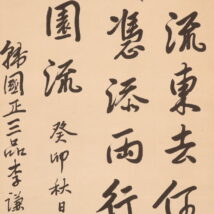 流東去何
憑添兩行
園流
癸卯秋日
韓國正三品李謙